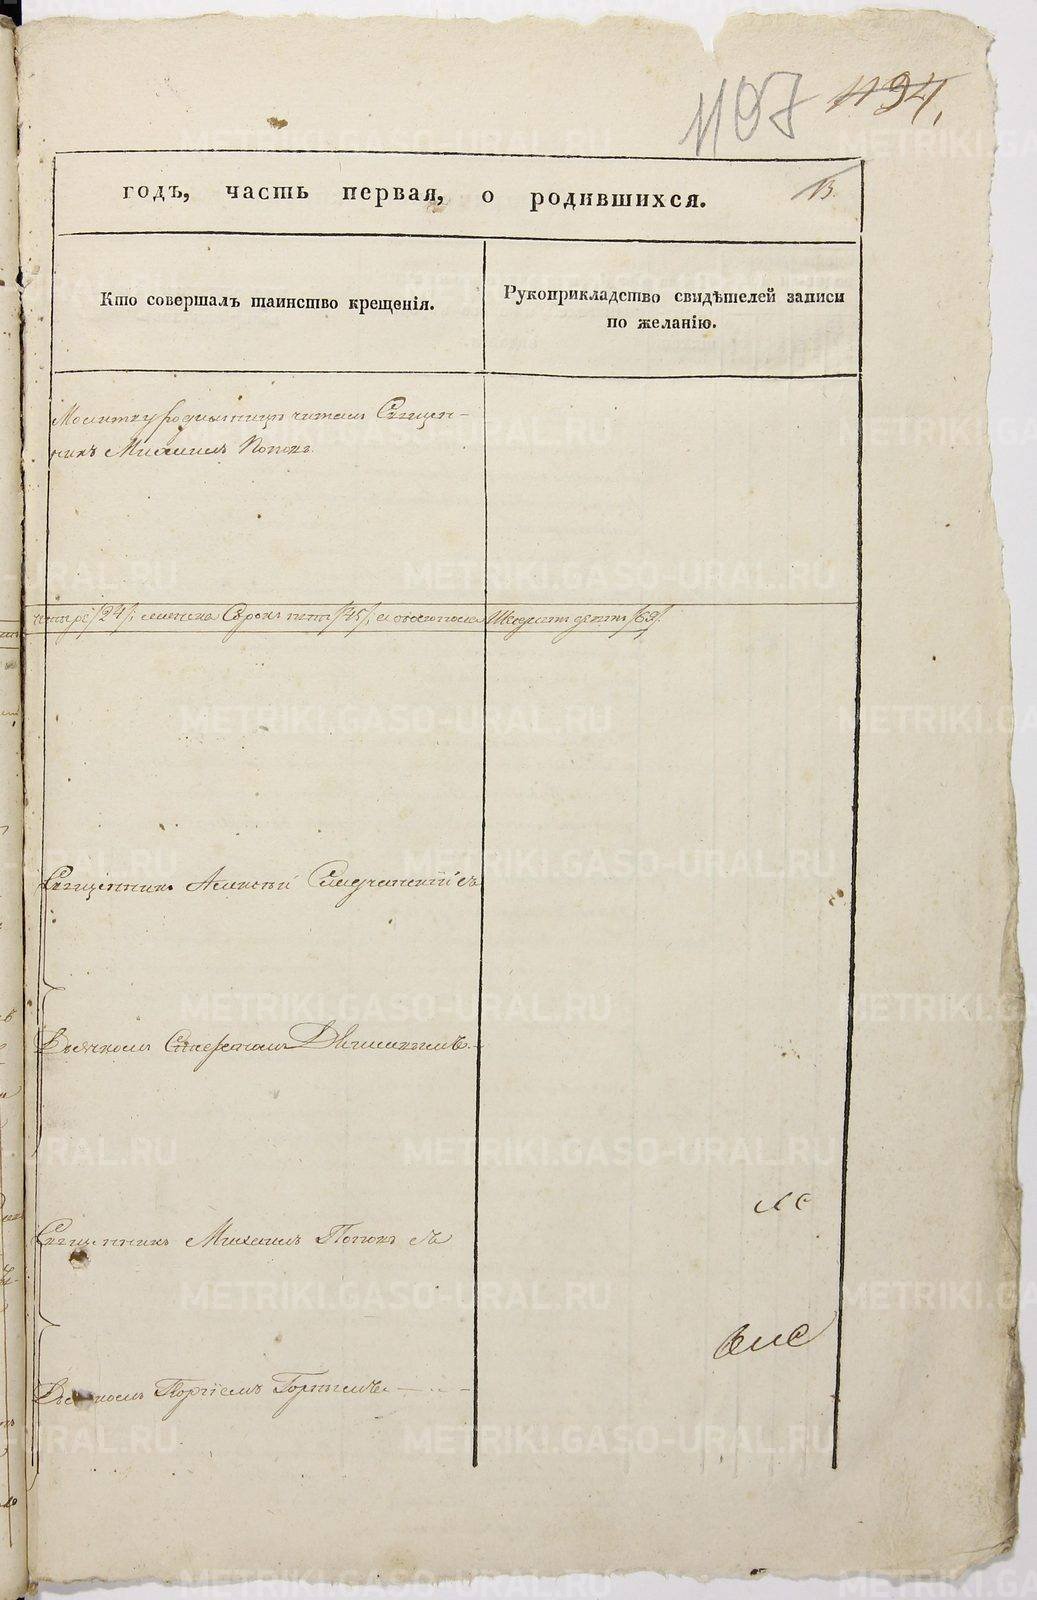 1197 1194.
годъ, часть первая, о родившихся. 13.
Кто совершалъ таинство крещенія.
Рукоприкладство свидѣтелей записи
по желанію.
Молитву родильницѣ читалъ Священ-
никъ Михаилъ Поповъ.
четыре /24/; женска Сорокъ пять /45/, а обоего пола Шездесятъ девять /69/.
Священникъ Алексѣй съ
Дьячкомъ
Священникъ Михаилъ Поповъ съ
Дьячкомъ
METRIKI.GASO-URAL.RU